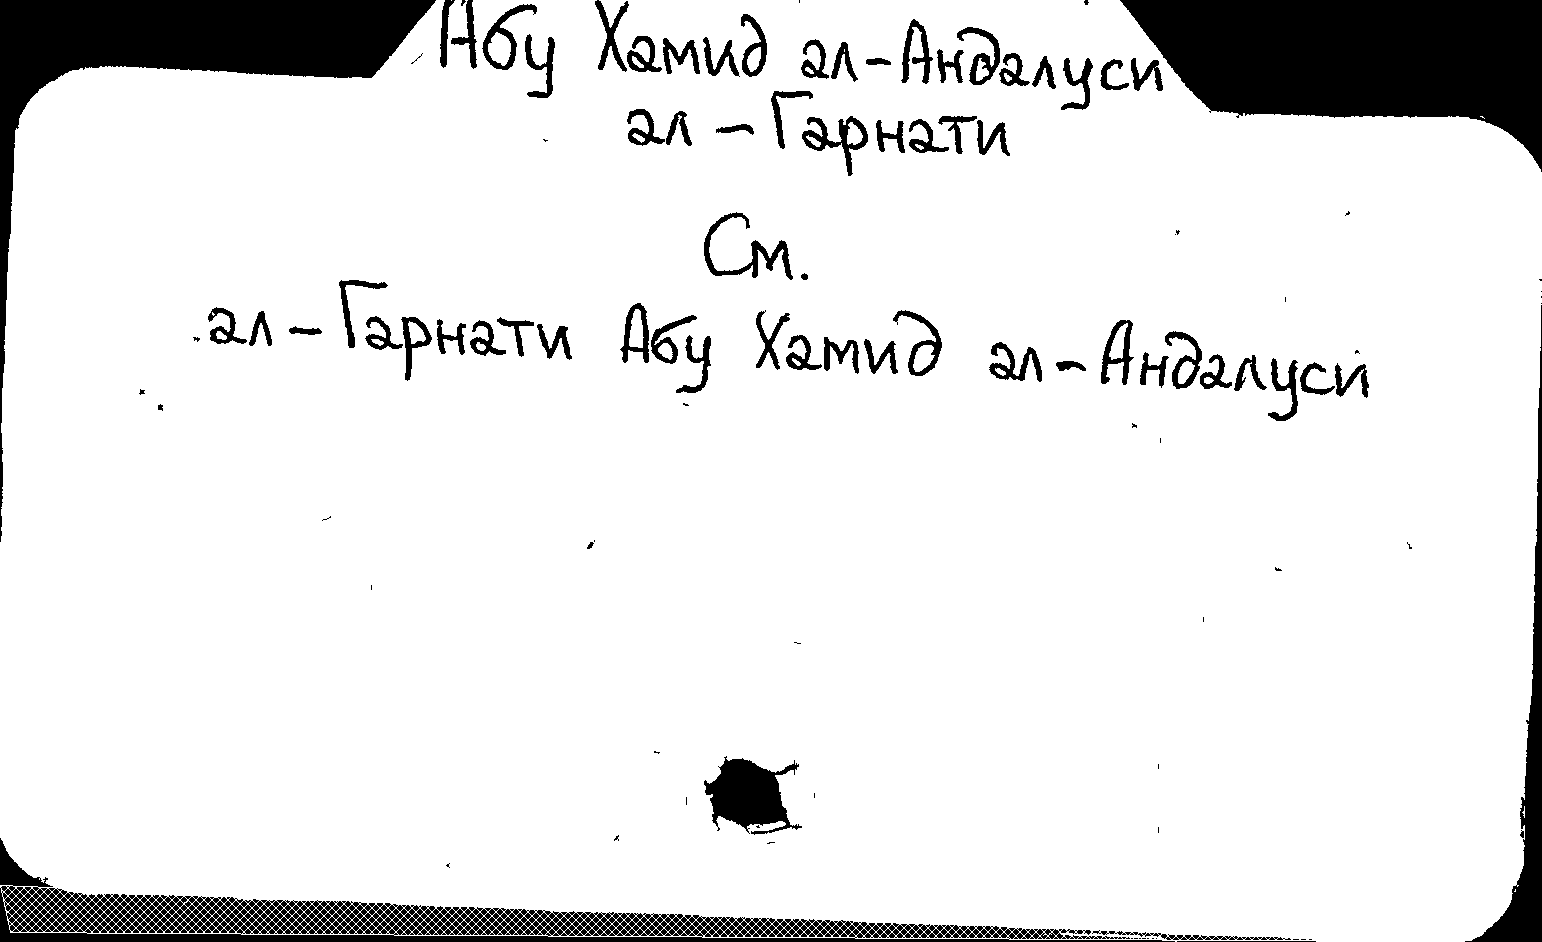 Абу Хамид ал-Андалуси
ал-Гарнати
См.
ал-Гарнати Абу Хамид ал-Андалуси